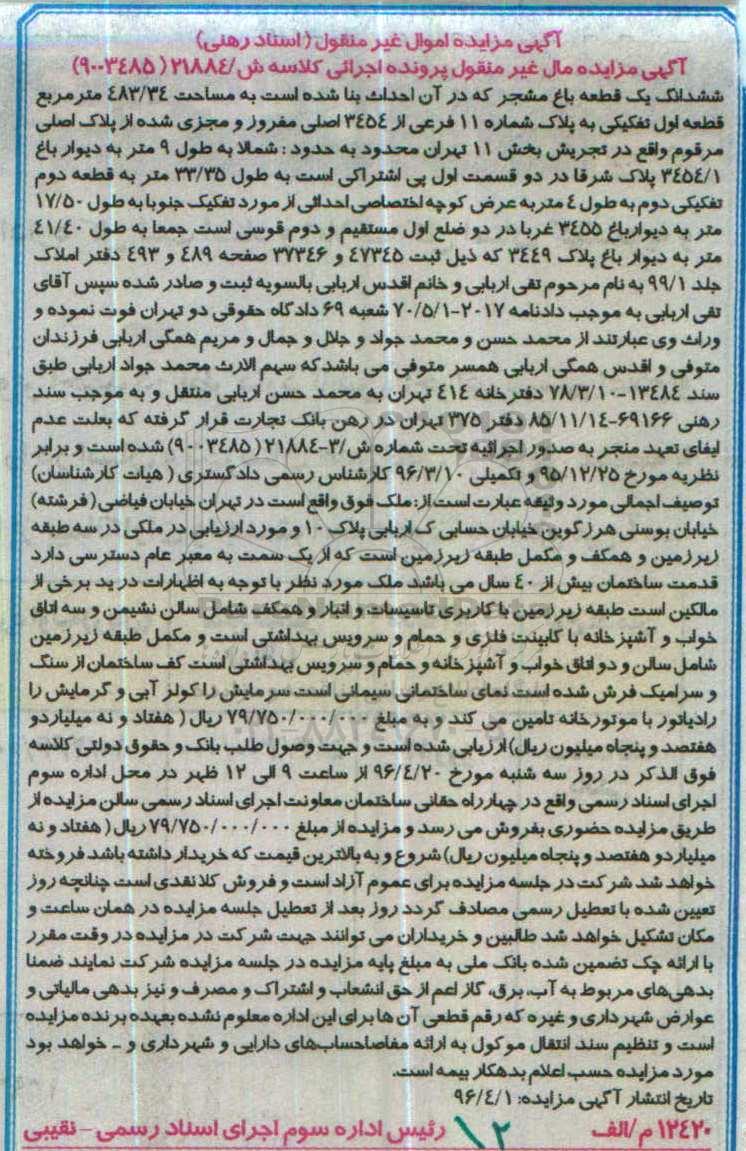 آگهی مزایده اموال غیر منقول (اسناد رهنی)
آگهی مزایده مال غیر منقول پرونده اجرائی کلاسه ش/۲۱۸۸٤ (۹۰۰۳٤۸۵)
ششدانگ یک قطعه باغ مشجر که در آن احداث بنا شده است به مساحت ٤۸۳/۳٤ مترمربع
قطعه اول تفکیکی به پلاک شماره ۱۱ فرعی از ۳٤۵٤ اصلی مفروز و مجزی شده از پلاک اصلی
مرقوم واقع در تجریش بخش ۱۱ تهران محدود به حدود : شمالا به طول ۹ متر به دیوار باغ
۳٤۵٤/۱ پلاک شرقا در دو قسمت اول پی اشتراکی است به طول ۳۳/۳۵ متر به قطعه دوم
تفکیکی دوم به طول ٤ متر به عرض کوچه اختصاصی احداثی از مورد تفکیک جنوبا به طول ۱۷/۵۰
متر به دیوارباغ ۳٤۵۵ غربا در دو ضلع اول مستقیم و دوم قوسی است جمعا به طول ٤۱/٤۰
متر به دیوار باغ پلاک ۳٤٤۹ که ذیل ثبت ٤۷۳٤۵ و ۳۷۳٤۶ صفحه ٤۸۹ و ٤۹۳ دفتر املاک
جلد ۹۹/۱ به نام مرحوم تقی اربابی و خانم اقدس اربابی بالسویه ثبت و صادر شده سپس آقای
تقی اربابی به موجب دادنامه ۲۰۱۷-۷۰/۵/۱ شعبه ۶۹ دادگاه حقوقی دو تهران فوت نموده و
وراث وی عبارتند از محمد حسن و محمد جواد و جلال و جمال و مریم همگی اربابی فرزندان
متوفی و اقدس همگی اربابی همسر متوفی می باشد که سهم الارث محمد جواد اربابی طبق
سند ۱۳٤۸٤-۷۸/۳/۱۰ دفترخانه ٤۱٤ تهران به محمد حسن اربابی منتقل و به موجب سند
رهنی ۶۹۱۶۶-۸۵/۱۱/۱٤ دفتر ۳۷۵ تهران در رهن بانک تجارت قرار گرفته که بعلت عدم
ایفای تعهد منجر به صدور اجرائیه تحت شماره ش/۳-۲۱۸۸٤ (۹۰۰۳٤۸۵) شده است و برابر
نظریه مورخ ۹۵/۱۲/۲۵ و تکمیلی ۹۶/۳/۱۰ کارشناس رسمی دادگستری ( هیات کارشناسان)
توصیف اجمالی مورد وثیقه عبارت است از: ملک فوق واقع است در تهران خیابان فیاضی (فرشته)
خیابان بوسنی هرزگوین خیابان حسابی ک اربابی پلاک ۱۰ و مورد ارزیابی در ملکی در سه طبقه
زیرزمین و همکف و مکمل طبقه زیرزمین است که از یک سمت به معبر عام دسترسی دارد
قدمت ساختمان بیش از ٤۰ سال می باشد ملک مورد نظر با توجه به اظهارات در ید برخی از
مالکین است طبقه زیرزمین با کاربری تاسیسات و انبار و همکف شامل سالن نشیمن و سه اتاق
خواب و آشپزخانه با کابینت فلزی و حمام و سرویس بهداشتی است و مکمل طبقه زیرزمین
شامل سالن و دو اتاق خواب و آشپزخانه و حمام و سرویس بهداشتی است کف ساختمان از سنگ
و سرامیک فرش شده است نمای ساختمانی سیمانی است سرمایش را کولر آبی و گرمایش را
رادیاتور با موتورخانه تامین می کند و به مبلغ ۷۹/۷۵۰/۰۰۰/۰۰۰ ریال ( هفتاد و نه میلیاردو
هفتصد و پنجاه میلیون ریال) ارزیابی شده است و جهت وصول طلب بانک و حقوق دولتی کلاسه
فوق الذکر در روز سه شنبه مورخ ۹۶/٤/۲۰ از ساعت ۹ الی ۱۲ ظهر در محل اداره سوم
اجرای اسناد رسمی واقع در چهارراه حقانی ساختمان معاونت اجرای اسناد رسمی سالن مزایده از
طریق مزایده حضوری بفروش می رسد و مزایده از مبلغ ۷۹/۷۵۰/۰۰۰/۰۰۰ ریال ( هفتاد و نه
میلیاردو هفتصد و پنجاه میلیون ریال) شروع و به بالاترین قیمت که خریدار داشته باشد فروخته
خواهد شد شرکت در جلسه مزایده برای عموم آزاد است و فروش کلا نقدی است چنانچه روز
تعیین شده با تعطیل رسمی مصادف گردد روز بعد از تعطیل جلسه مزایده در همان ساعت و
مکان تشکیل خواهد شد طالبین و خریداران می توانند جهت شرکت در مزایده در وقت مقرر
با ارائه چک تضمین شده بانک ملی به مبلغ پایه مزایده در جلسه مزایده شرکت نمایند ضمنا
بدهی‌های مربوط به آب، برق، گاز اعم از حق انشعاب و اشتراک و مصرف و نیز بدهی مالیاتی و
عوارض شهرداری و غیره که رقم قطعی آن ها برای این اداره معلوم نشده بعهده برنده مزایده
است و تنظیم سند انتقال موکول به ارائه مفاصاحساب‌های دارایی و شهرداری و ـ خواهد بود
مورد مزایده حسب اعلام بدهکار بیمه است.
تاریخ انتشار آگهی مزایده: ۹۶/٤/۱
۱۲٤۲۰ م/الف رئیس اداره سوم اجرای اسناد رسمی – نقیبی
۱۲